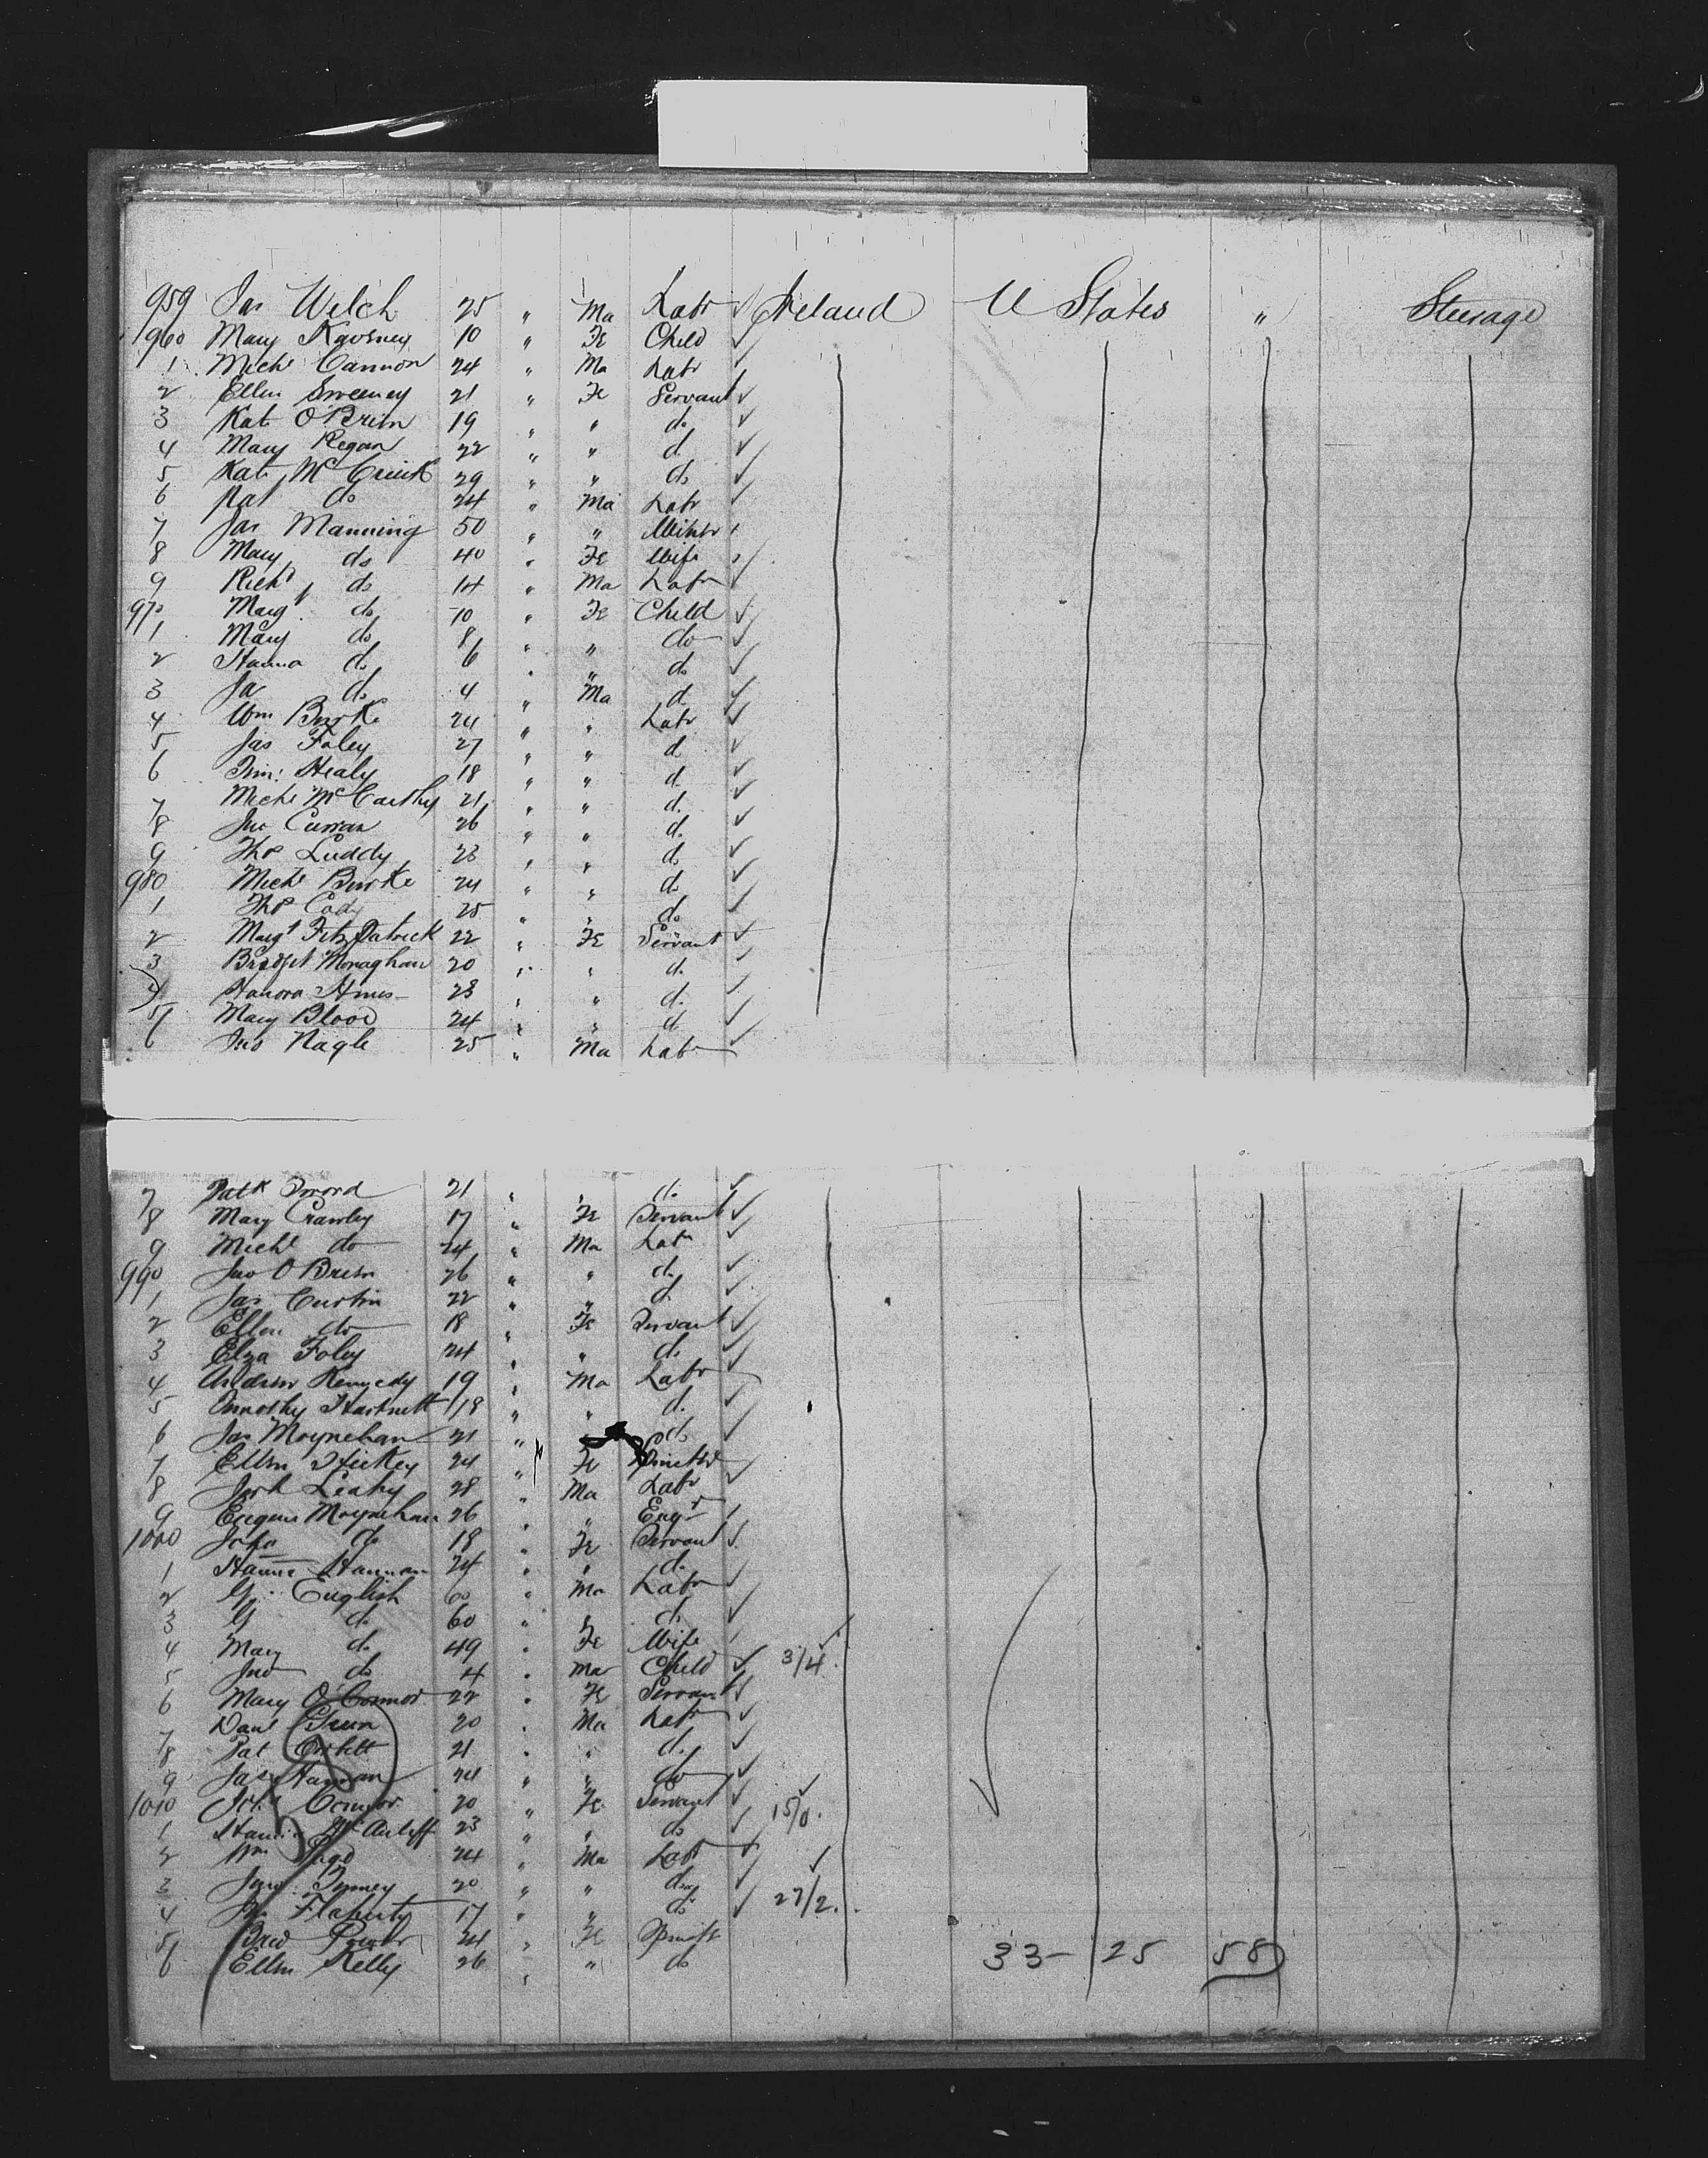 959 Jas Welch 25 " Ma Labr ✓ Ireland U States " Steerage
960 Mary Kaverney 10 " Fe Child ✓
1 Michl Cannon 24 " Ma Labr
2 Ellen Sweeney 21 " Fe Servant ✓
3 Kat O'Brien 19 " " do ✓
4 Mary Regan 22 " " d ✓
5 Kat Mc 29 " " do ✓
6 Pat do 24 " Ma Labr ✓
7 Jas Manning 50 " "
8 Mary do 40 " Fe Wife
9 Richd do 14 " Ma Labr ✓
970 Margt do 10 " Fe Child ✓
1 Mary do 8 " " do ✓
2 Hanna do 6 " " do ✓
3 Ja do 4 " Ma d ✓
4 Wm Burke 24 " " Labr ✓
5 Jas Foley 27 " " d ✓
6 Tim: Healy 18 " " d ✓
7 Michl McCarthy 21 " " d. ✓
8 Jno Curran 26 " " d. ✓
9 Thos Luddy 23 " " do ✓
980 Michl Burke 24 " " do ✓
1 Thos Cody 25 " " do ✓
2 Margt FitzPatrick 22 " Fe Servant ✓
3 Bridget Monaghan 20 " " d. ✓
4 Hanora 23 " " d. ✓
5 Mary Blood 24 " " d ✓
6 Jno Nagle 25 " Ma Labr ✓
7 Patk 21 " " d. ✓
8 Mary Crawley 17 " Fe Servant ✓
9 Michl do 24 " Ma Labr ✓
990 Jno O'Brien 26 " " d. ✓
1 Jas Curtin 22 " " d. ✓
2 Ellen do 18 " Fe Servant ✓
3 Elza Foley 24 " " do ✓
4 Andrew Kennedy 19 " Ma Labr
5 Timothy Hartnett 18 " " d. ✓
6 Jas Moynehan 21 " " do ✓
7 Ellen Hickey 24 " Fe Spinster ✓
8 Jerh Leahy 28 " Ma Labr
9 Eugene Moynehan 26 " " Engr ✓
1000 do 18 " Fe Servant ✓
1 Hanna Hannan 24 " " d.
2 English 60 " Ma Labr ✓
3 do 60 " " d. ✓
4 Mary do 49 " Fe Wife
5 Jno do 4 " Ma Child ✓ 3/4
6 Mary O'Connor 22 " Fe Servant ✓
7 Danl Green 20 " Ma Labr ✓
8 Pat Corbett 21 " " d. ✓
9 Jas Hannan 24 " " do ✓
1010 Connor 20 " Fe Servant ✓
1 McAuliff 23 " " do ✓ 15/0.
2 Wm 24 " Ma Labr ✓
3 20 " " do ✓
4 Flaherty 17 " " do ✓ 27/2.
5 Brid Power 24 " Fe Spinstr
6 Ellen Kelly 26 " " do 33- 25 58